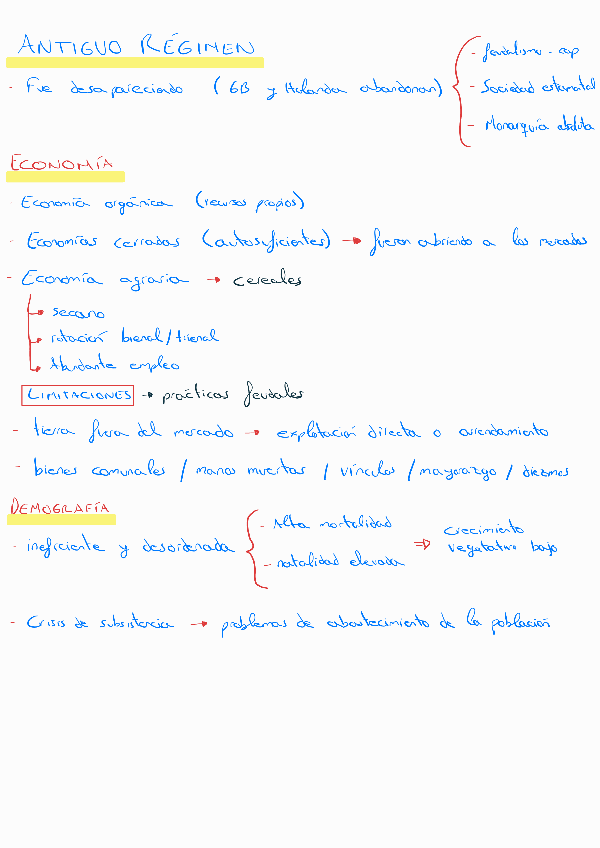 ANTIGUO RÉGIMEN
- Fue desapareciendo (GB y Holanda abandonan)
- feudalismo - cap
- Sociedad estamental
- Monarquía absoluta
ECONOMÍA
- Economía orgánica (recursos propios)
- Economías cerradas (autosuficientes) → fueron abriendo a los mercados
- Economía agraria → cereales
→ secano
→ rotación bienal/trienal
→ Abundante empleo
LIMITACIONES → prácticas feudales
- tierra fuera del mercado → explotación directa o arrendamiento
- bienes comunales / manos muertas / vínculos / mayorazgo / diezmos
DEMOGRAFÍA
- ineficiente y desordenada
- Alta mortalidad
- natalidad elevada
⇒ crecimiento
vegetativo bajo
- Crisis de subsistencia → problemas de abastecimiento de la población